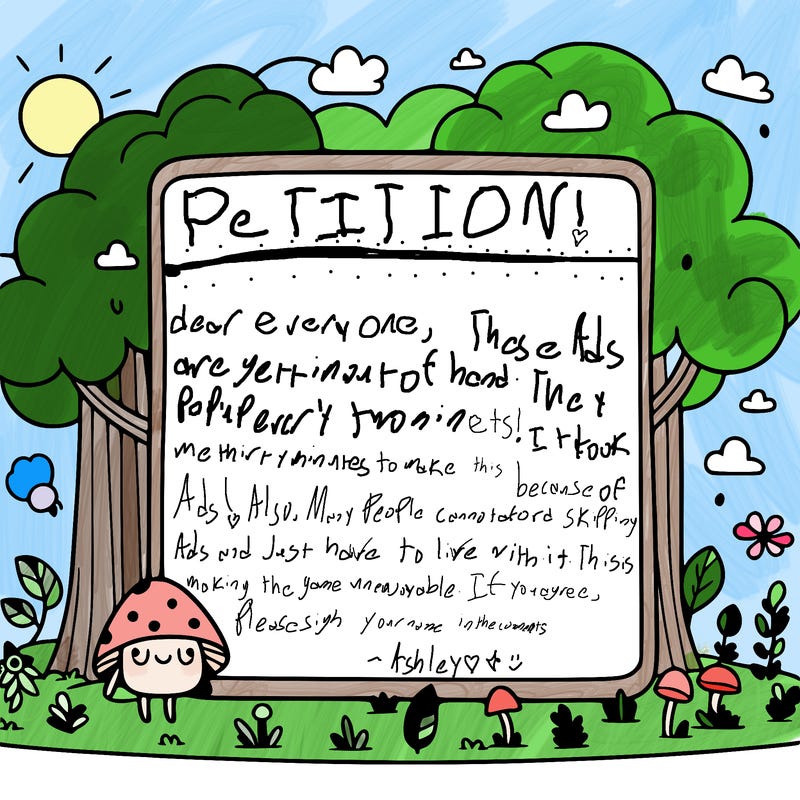 PeTITION!
dear everyone, These Ads
are gettin out of hand. They
PoPuP every two minets!
It took
me thirty minutes to make this because of
Ads! Also, Many People cannot aford skipping
Ads and Just have to live with it. This is
making the game unenjoyable. If you agree,
Please sigh your name in the comments
~ Ashley♡✦☺